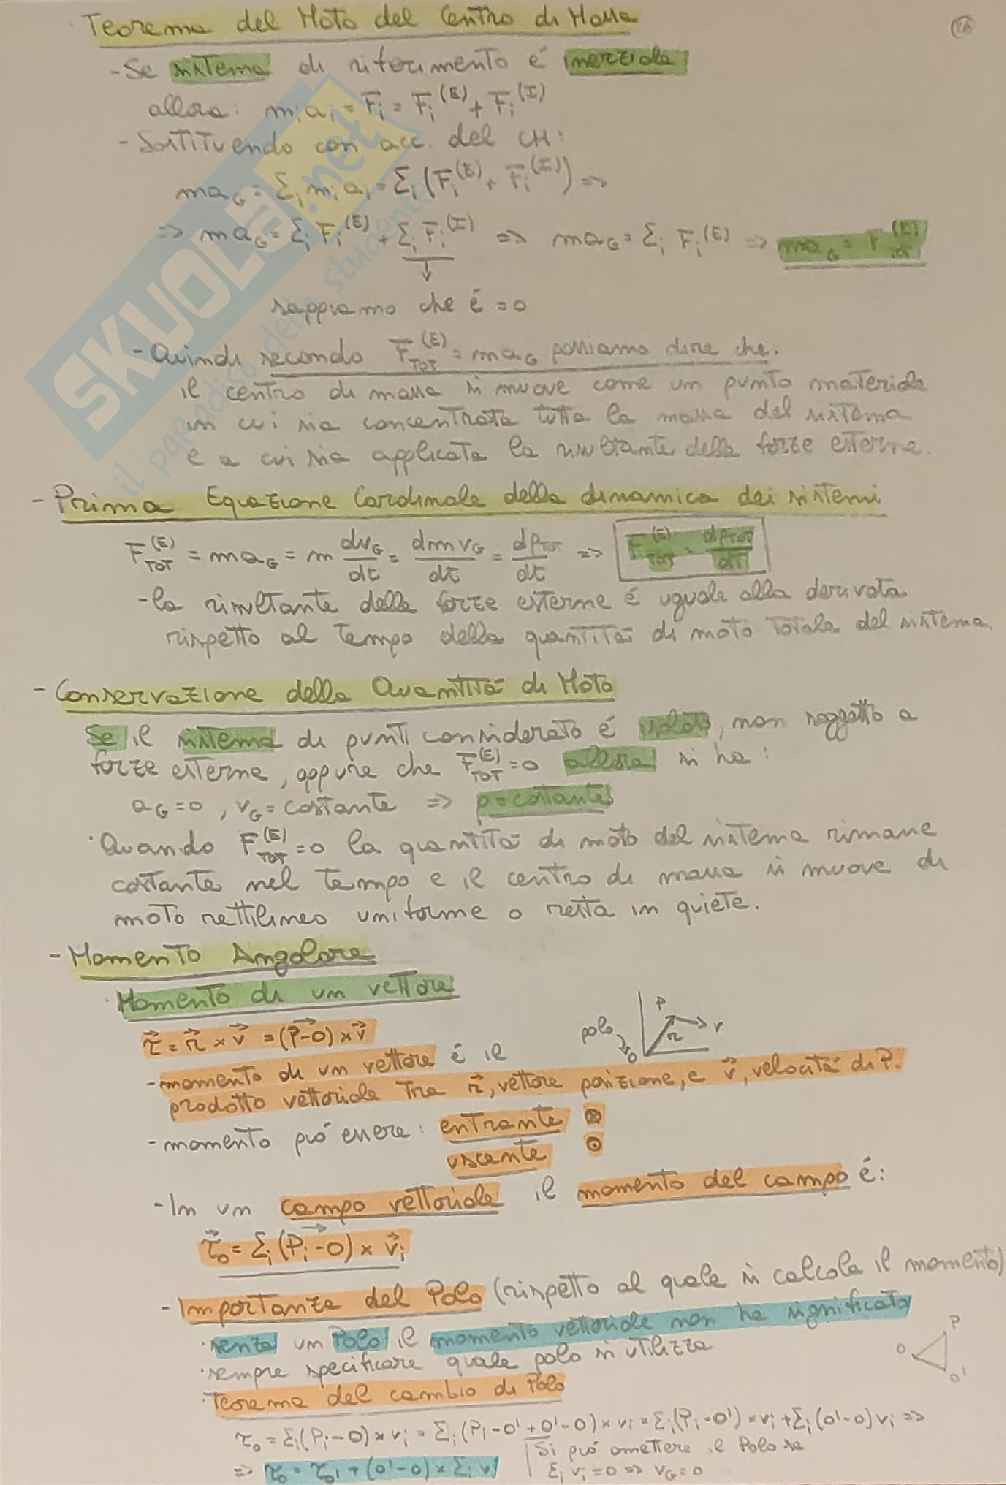 Teorema del Moto del Centro di Massa
26
- Se sistema di riferimento é inerziale
allora: miai = Fi = Fi(E) + Fi(I)
- Sostituendo con acc. del CM:
maG = Σi miai = Σi (Fi(E) + Fi(I)) =>
=> maG = Σi Fi(E) + Σi Fi(I) => maG = Σi Fi(E) => maG = FTOT(E)
sappiamo che é = 0
- Quindi secondo FTOT(E) = maG possiamo dire che:
il centro di massa si muove come un punto materiale
in cui sia concentrata tutta la massa del sistema
e a cui sia applicata la risultante delle forze esterne.
- Prima Equazione Cardinale della dinamica dei sistemi
FTOT(E) = maG = m dvG/dt = dmvG/dt = dpTOT/dt => FTOT(E) = dpTOT/dt
- la risultante delle forze esterne é uguale alla derivata
rispetto al tempo della quantitá di moto totale del sistema.
- Conservazione della Quantitá di Moto
Se il sistema di punti considerato é isolato, non soggetto a
forze esterne, oppure che FTOT(E) = 0 allora si ha:
aG = 0, vG = costante => p = costante
· Quando FTOT(E) = 0 la quantitá di moto del sistema rimane
costante nel tempo e il centro di massa si muove di
moto rettilineo uniforme o resta in quiete.
- Momento Angolare
· Momento di un vettore
τ⃗ = r⃗ × v⃗ = (P-O) × v⃗
polo O P r v
- momento di un vettore é il
prodotto vettoriale tra r⃗, vettore posizione, e v⃗, velocitá di P.
- momento puó essere: entrante ⊗
uscente ⊙
- In un campo vettoriale il momento del campo é:
τ⃗o = Σi (Pi-O) × v⃗i
- Importanza del Polo (rispetto al quale si calcola il momento)
· senza un Polo il momento vettoriale non ha significato
· sempre specificare quale polo si utilizza
O P O'
· Teorema del cambio di Polo
τo = Σi(Pi-O) × vi = Σi(Pi-O'+O'-O) × vi = Σi(Pi-O') × vi + Σi(O'-O) vi =>
=> τo = τo' + (O'-O) × Σi vi
Si puó omettere il Polo se
Σi vi = 0 => vG = 0
SKUOLA.net
il paradiso dello studente